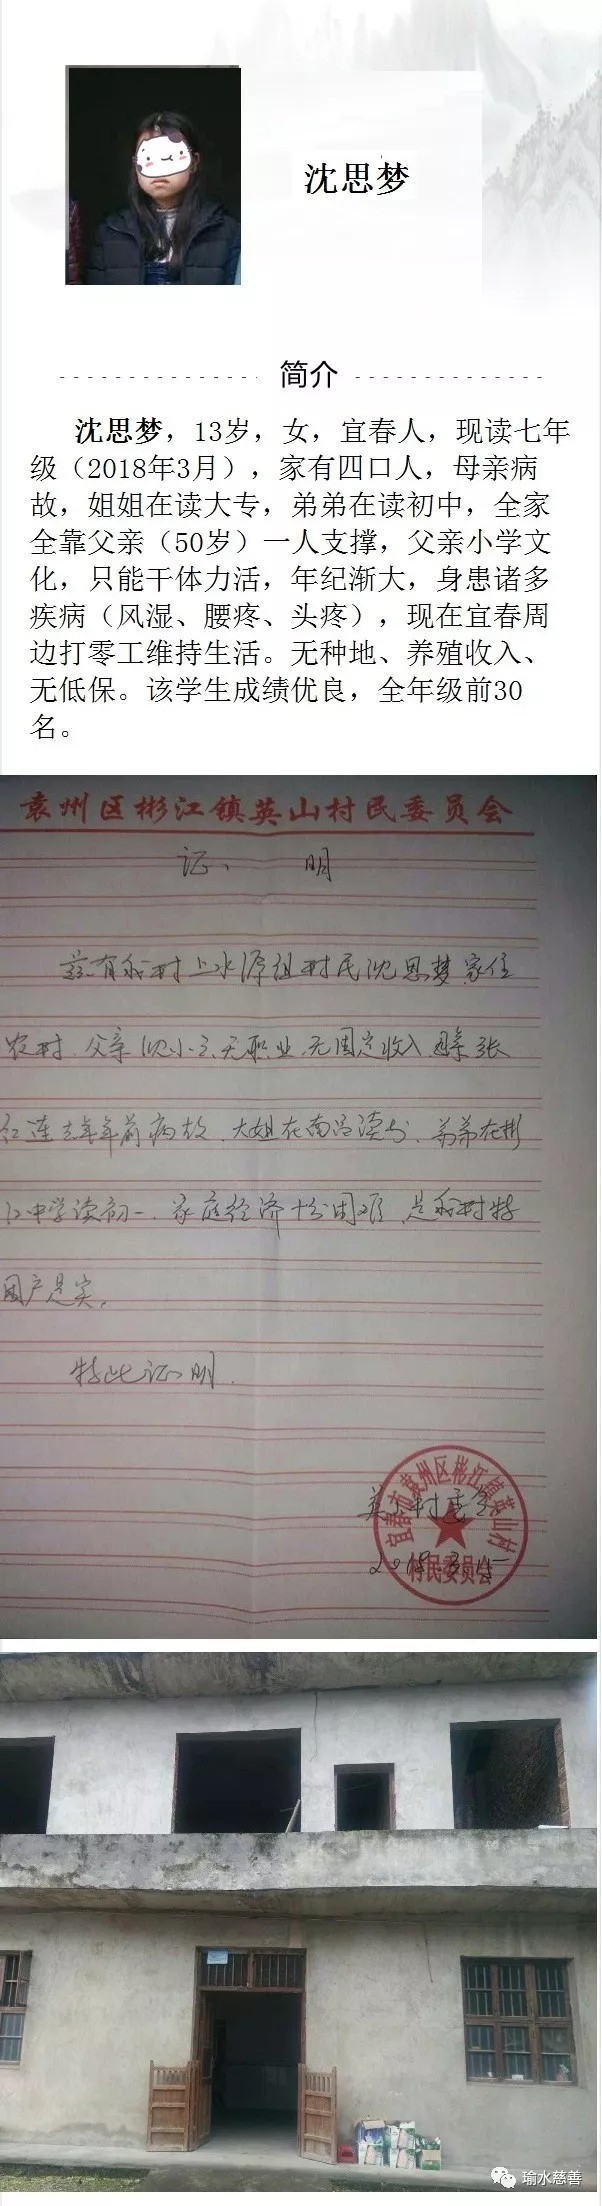 沈思梦
简介
沈思梦，13岁，女，宜春人，现读七年
级（2018年3月），家有四口人，母亲病
故，姐姐在读大专，弟弟在读初中，全家
全靠父亲（50岁）一人支撑，父亲小学文
化，只能干体力活，年纪渐大，身患诸多
疾病（风湿、腰疼、头疼），现在宜春周
边打零工维持生活。无种地、养殖收入、
无低保。该学生成绩优良，全年级前30
名。
袁州区彬江镇英山村民委员会
证 明
兹有我村上水源组村民沈思梦家住
农村.父亲沈小 无职业.无固定收入.母亲张
红莲去年年前病故.大姐在南昌读书.弟弟在彬
江中学读初一.家庭经济十分困难.是我村特
困户是实.
特此证明.
英山村委会
宜春市袁州区彬江镇英山村
村民委员会
瑜水慈善